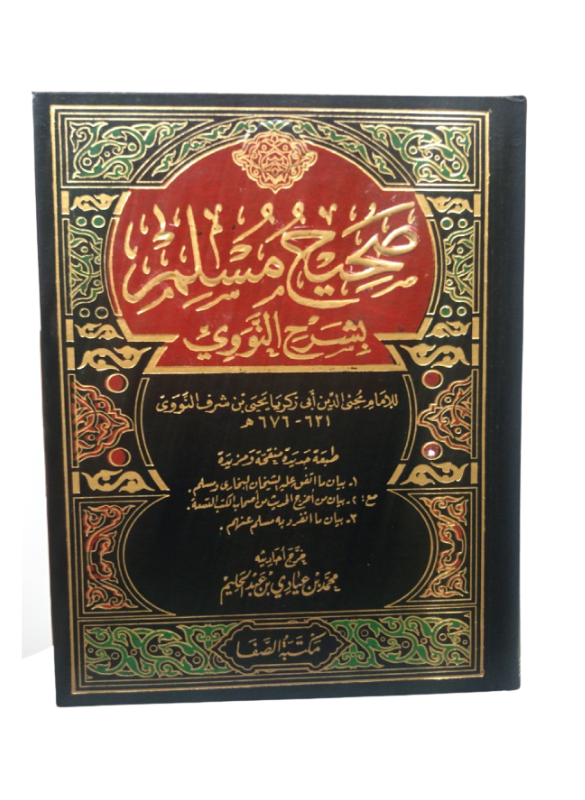 صَحِيحُ مُسْلِم
بِشَرْحِ النَّوَوِيّ
للإمام محيى الدين أبى زكريا يحيى بن شرف النووى
٦٣١ - ٦٧٦ هـ
طبعة جديدة منقحة ومزيدة
١- بيان ما اتفق عليه الشيخان البخارى ومسلم.
مع: ٢- بيان من أخرج الحديث من أصحاب الكتب التسعة.
٣- بيان ما انفرد به مسلم عنهم.
خرج أحاديثه
محمد بن عيادي بن عبد الحليم
مكتبة الصفا